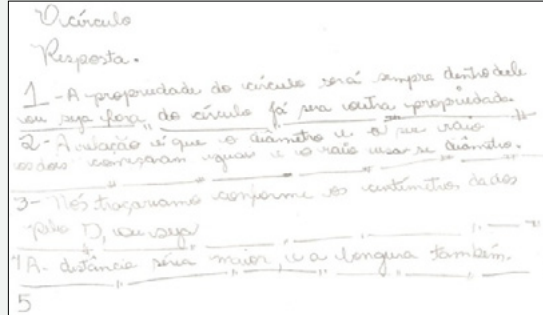 O círculo
Resposta.
1 - A propriedade do círculo será sempre dentro dele
ou seja fora, do círculo já sera outra propriedade.
2 - A relação é que o diâmetro e o seu raio
os dois começaram iguais e o raio usa-se diâmetro.
3 - Nós traçariamo conforme os centímetros dados
pelo D, ou seja
4 A - distância séria maior, e a longura também.
5